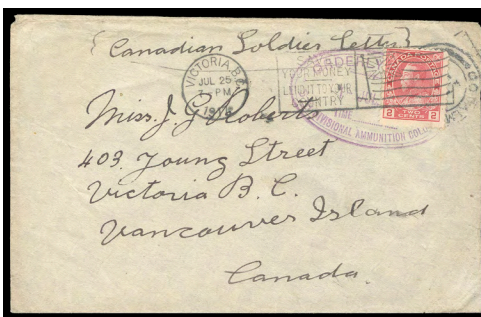 {Canadian Soldier Letter}
VICTORIA, B.C.
JUL 25
PM
SAVE
YOUR MONEY
LEND IT TO YOUR
COUNTRY
TIME
DIVISIONAL AMMUNITION COL
TWO
2 CENTS 2
Miss. J. G. Roberts
403. Young Street
Victoria B. C.
Vancouver Island
Canada.